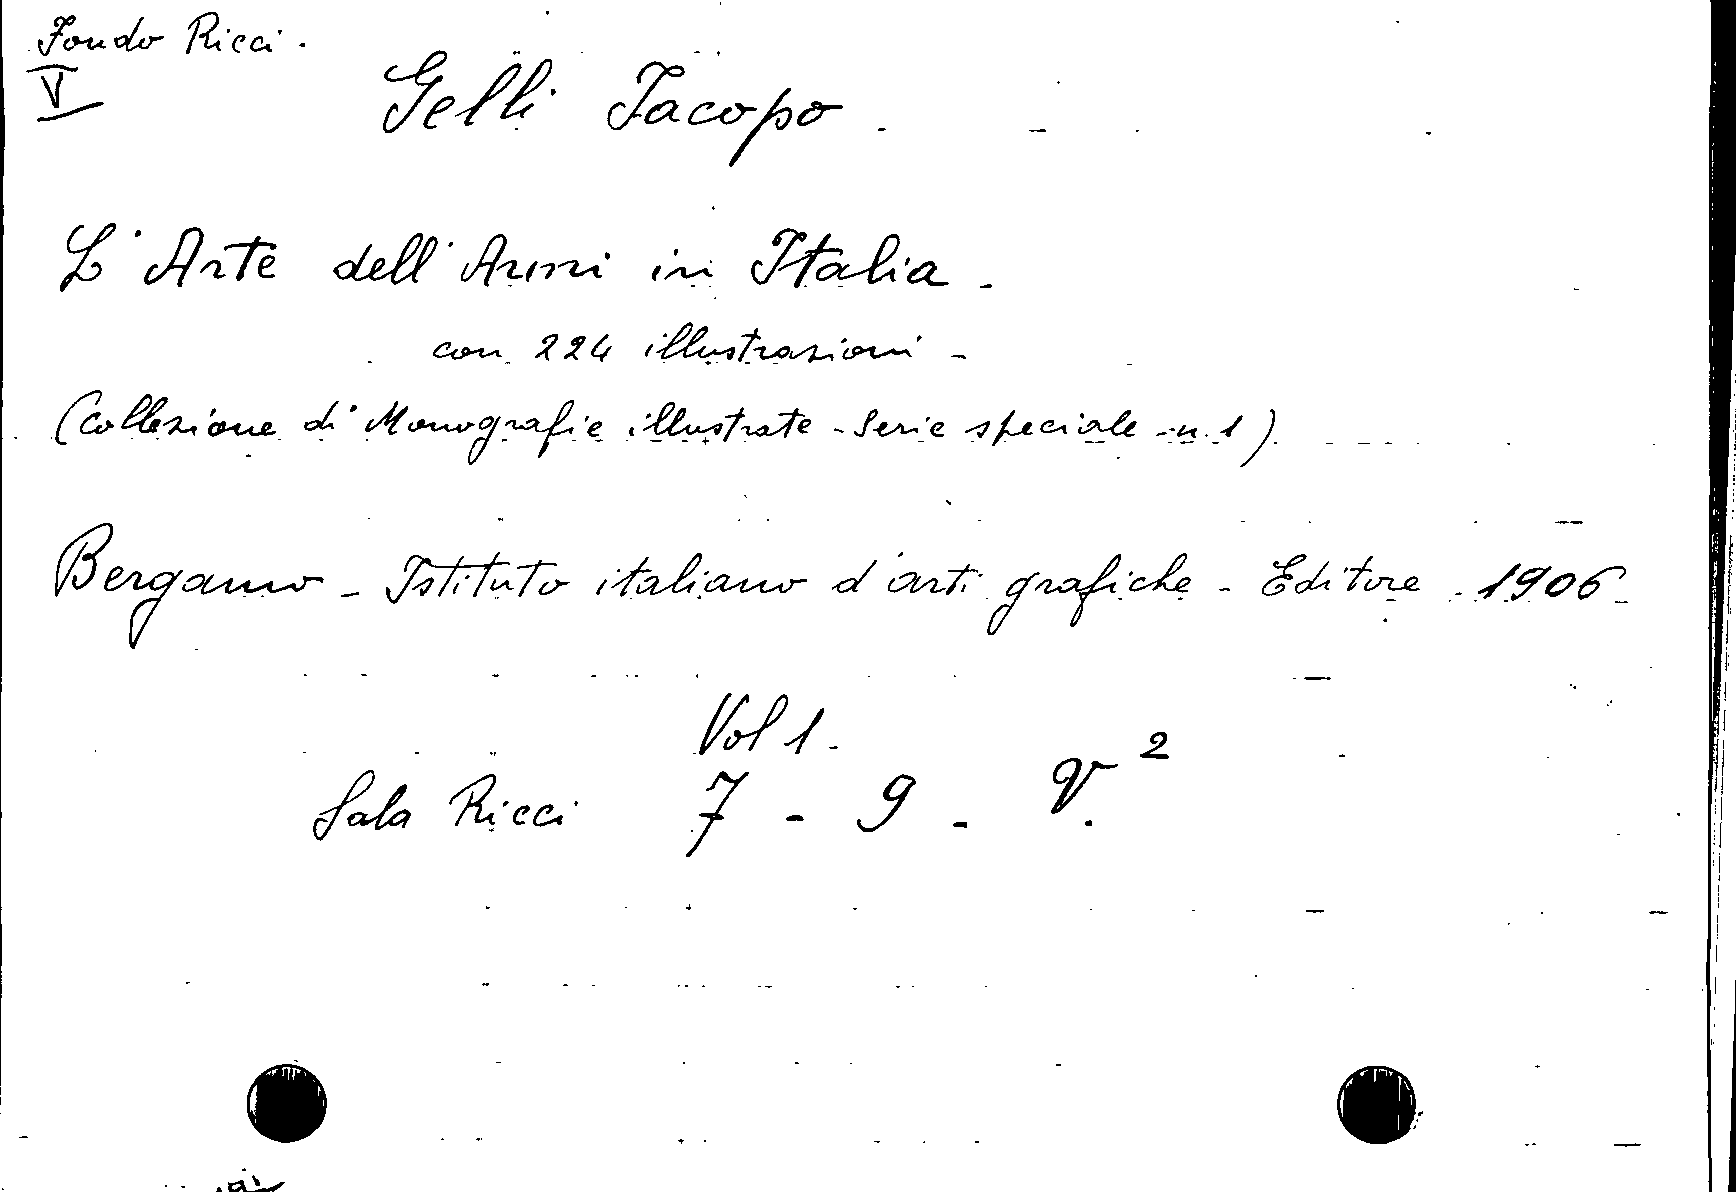 Fondo Ricci.
V
Gelli Jacopo.
L'Arte dell'Armi in Italia.
con 224 illustrazioni -
(Collezione di Monografie illustrate - Serie speciale - n. 1)
Bergamo - Istituto italiano d'arti grafiche - Editore 1906
Vol 1.
Sala Ricci 7 - 9 - V. 2